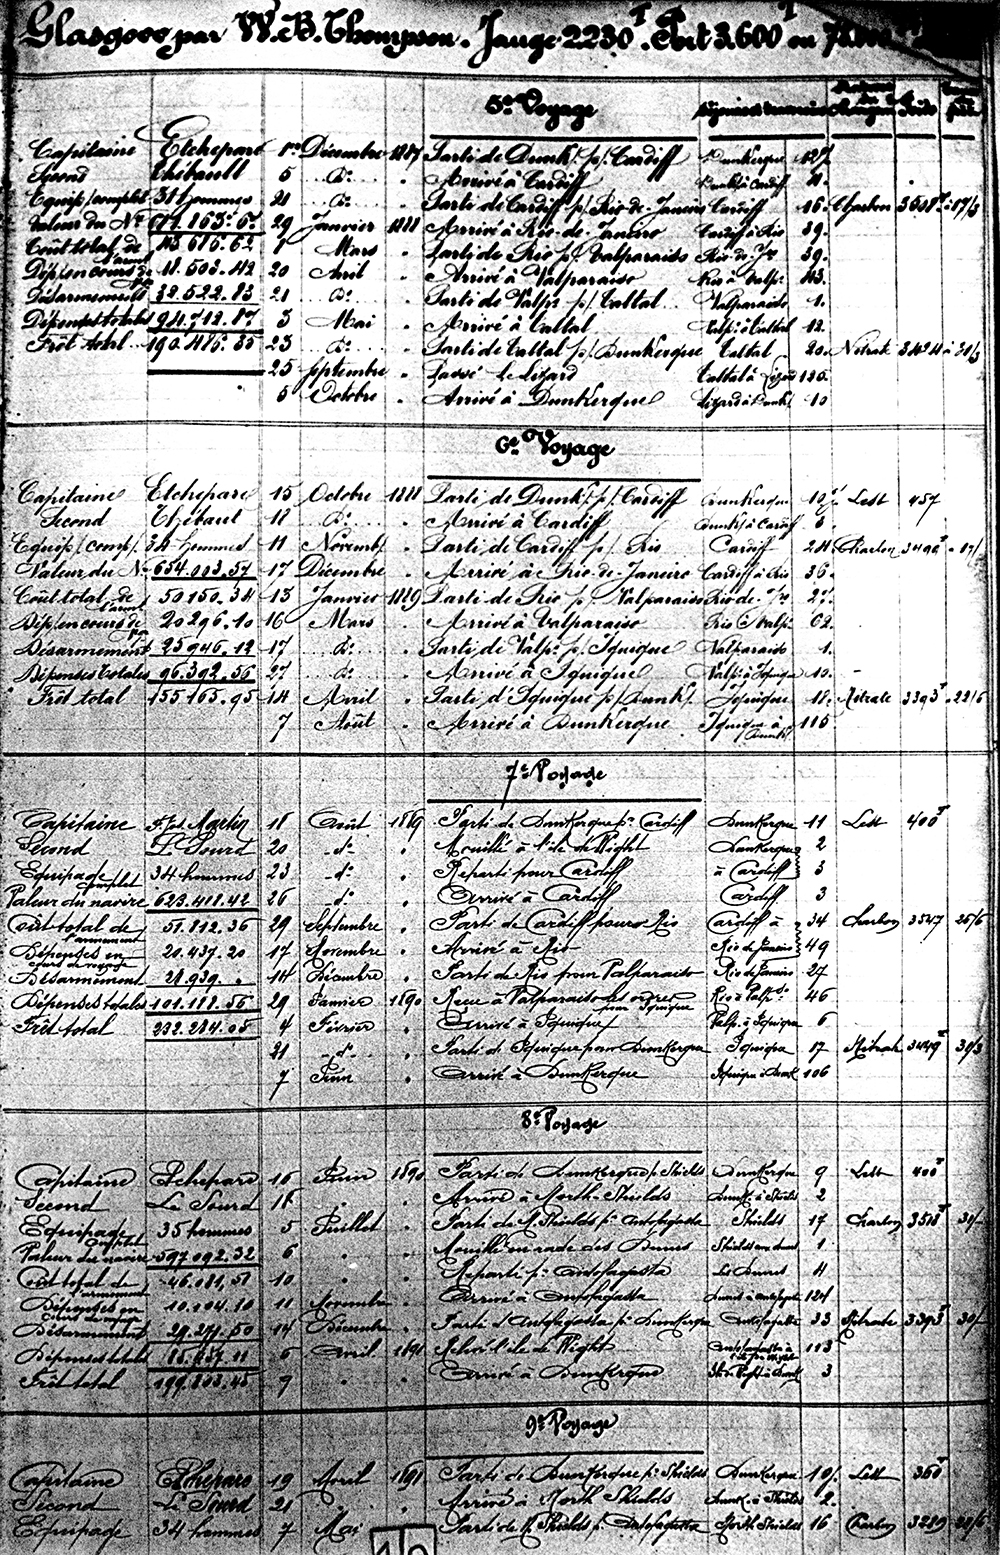 Glasgow par W. B. Thompson. Jauge 2230 T. Port 3.600 T ou
5e Voyage
Capitaine Etchepare 1er Décembre 1887 Parti de Dunk. p/. Cardiff Dunkerque 127
Second Thébault 5 do Arrivé à Cardiff Dunk. à Cardiff 4.
Equip. complet 31 hommes 21 do Parti de Cardiff p/. Rio-de-Janeiro Cardiff 16. Charbon
Valeur du Nre 29 Janvier 1888 Arrivé à Rio-de-Janeiro Cardiff à Rio 39.
Coût total de l'armt 1 Mars Parti de Rio p/. Valparaiso Rio-de-Jro 39.
Dép. en cours de 18.503.42 20 Avril Arrivé à Valparaiso Rio à Valp.
Désarmement 32.522.83 21 do Parti de Valp. p/. Taltal Valparaiso 1.
Dépenses totales 94.712.87 3 Mai Arrivé à Taltal Valp. à Taltal 12.
Frêt total 190.486.35 23 do Parti de Taltal p/. Dunkerque Taltal 20. Nitrate
25 Septembre Passé le Lizard Taltal à Lizard 125.
5 Octobre Arrivé à Dunkerque Lizard à Dunk. 10
6e Voyage
Capitaine Etchepare 15 Octobre 1888 Parti de Dunk. p/. Cardiff Dunkerque 10 Lest 457
Second Thébaut 18 do Arrivé à Cardiff Dunk. à Cardiff 3.
Equip. comp. 34 hommes 11 Novemb. Parti de Cardiff p/. Rio Cardiff 24. Charbon
Valeur du Nre 654.003.57 17 Décembre Arrivé à Rio-de-Janeiro Cardiff à Rio 36.
Coût total de l'armt 50150.34 13 Janvier 1889 Parti de Rio p/. Valparaiso Rio-de-Jro 27.
Dép. en cours de 20296.10 16 Mars Arrivé à Valparaiso Rio à Valp. 62.
Désarmement 25946.12 17 do Parti de Valp. p/. Iquique Valparaiso 1.
Dépenses totales 96.392.56 27 do Arrivé à Iquique Valp. à Iquique 10.
Frêt total 155165.95 14 Avril Parti d'Iquique p/. Dunk. Iquique 18. Nitrate 3393 T 22/6
7 Août Arrivé à Dunkerque Iquique à Dunk. 115
7e Voyage
Capitaine Martin 18 Août 1889 Parti de Dunkerque pr Cardiff Dunkerque 11 Lest 400 T
Second Le Sourd 20 -do- Mouillé à l'île de Wight Dunkerque 2
Equipage complet 34 hommes 23 -do- Reparti pour Cardiff à Cardiff 3
Valeur du navire 623.418.42 26 -do- Arrivé à Cardiff Cardiff 3
Coût total de l'armement 51.812.36 29 Septembre Parti de Cardiff pour Rio Cardiff à 34 Charbon 3547 26/6
Dépenses en cours de voyage 20.437.20 17 Novembre Arrivé à Rio Rio de Janeiro 49
Désarmement 28.939. 14 Décembre Parti de Rio pour Valparaiso Rio de Janeiro 27
Dépenses totales 101.188.56 29 Janvier 1890 Reçu à Valparaiso les ordres pour Iquique Rio à Valp. 46
Frêt total 232.284.05 4 Février Arrivé à Iquique Valp. à Iquique 6
21 -do- Parti de Iquique pour Dunkerque Iquique 17 Nitrate 3449 T 30/3
7 Juin Arrivé à Dunkerque Iquique à Dunk. 106
8e Voyage
Capitaine Etchepare 16 Juin 1890 Parti de Dunkerque pr Shields Dunkerque 9 Lest 400 T
Second Le Sourd 18 Arrivé à North-Shields Dunk. à Shields 2
Equipage complet 35 hommes 5 Juillet Parti de N. Shields pr Antofagasta Shields 17 Charbon
Valeur du navire 597.092.32 6 Mouillé en rade des Dunes 1
Coût total de l'armement 46.081,51 10 Reparti pr Antofagasta Les Dunes 4
Dépenses en cours de voyage 10.104.10 11 Novembre Arrivé à Antofagasta Dunes à Antofagasta 124
Désarmement 29.271.50 14 Décembre Parti d'Antofagasta pr Dunkerque Antofagasta 33 Nitrate 3393 T
Dépenses totales 6 Avril 1891 Relevé l'île de Wight Antofagasta à 113
Frêt total 199.803.45 9 Arrivé à Dunkerque Ile de Wight à Dunk. 3
9e Voyage
Capitaine Etchepare 19 Avril 1891 Parti de Dunkerque pr Shields Dunkerque 10 Lest 360 T
Second Le Sourd 21 Arrivé à North Shields Dunk. à Shields 2.
Equipage 34 hommes 7 Mai Parti de N. Shields p. Antofagasta North Shields 16 Charbon 3289